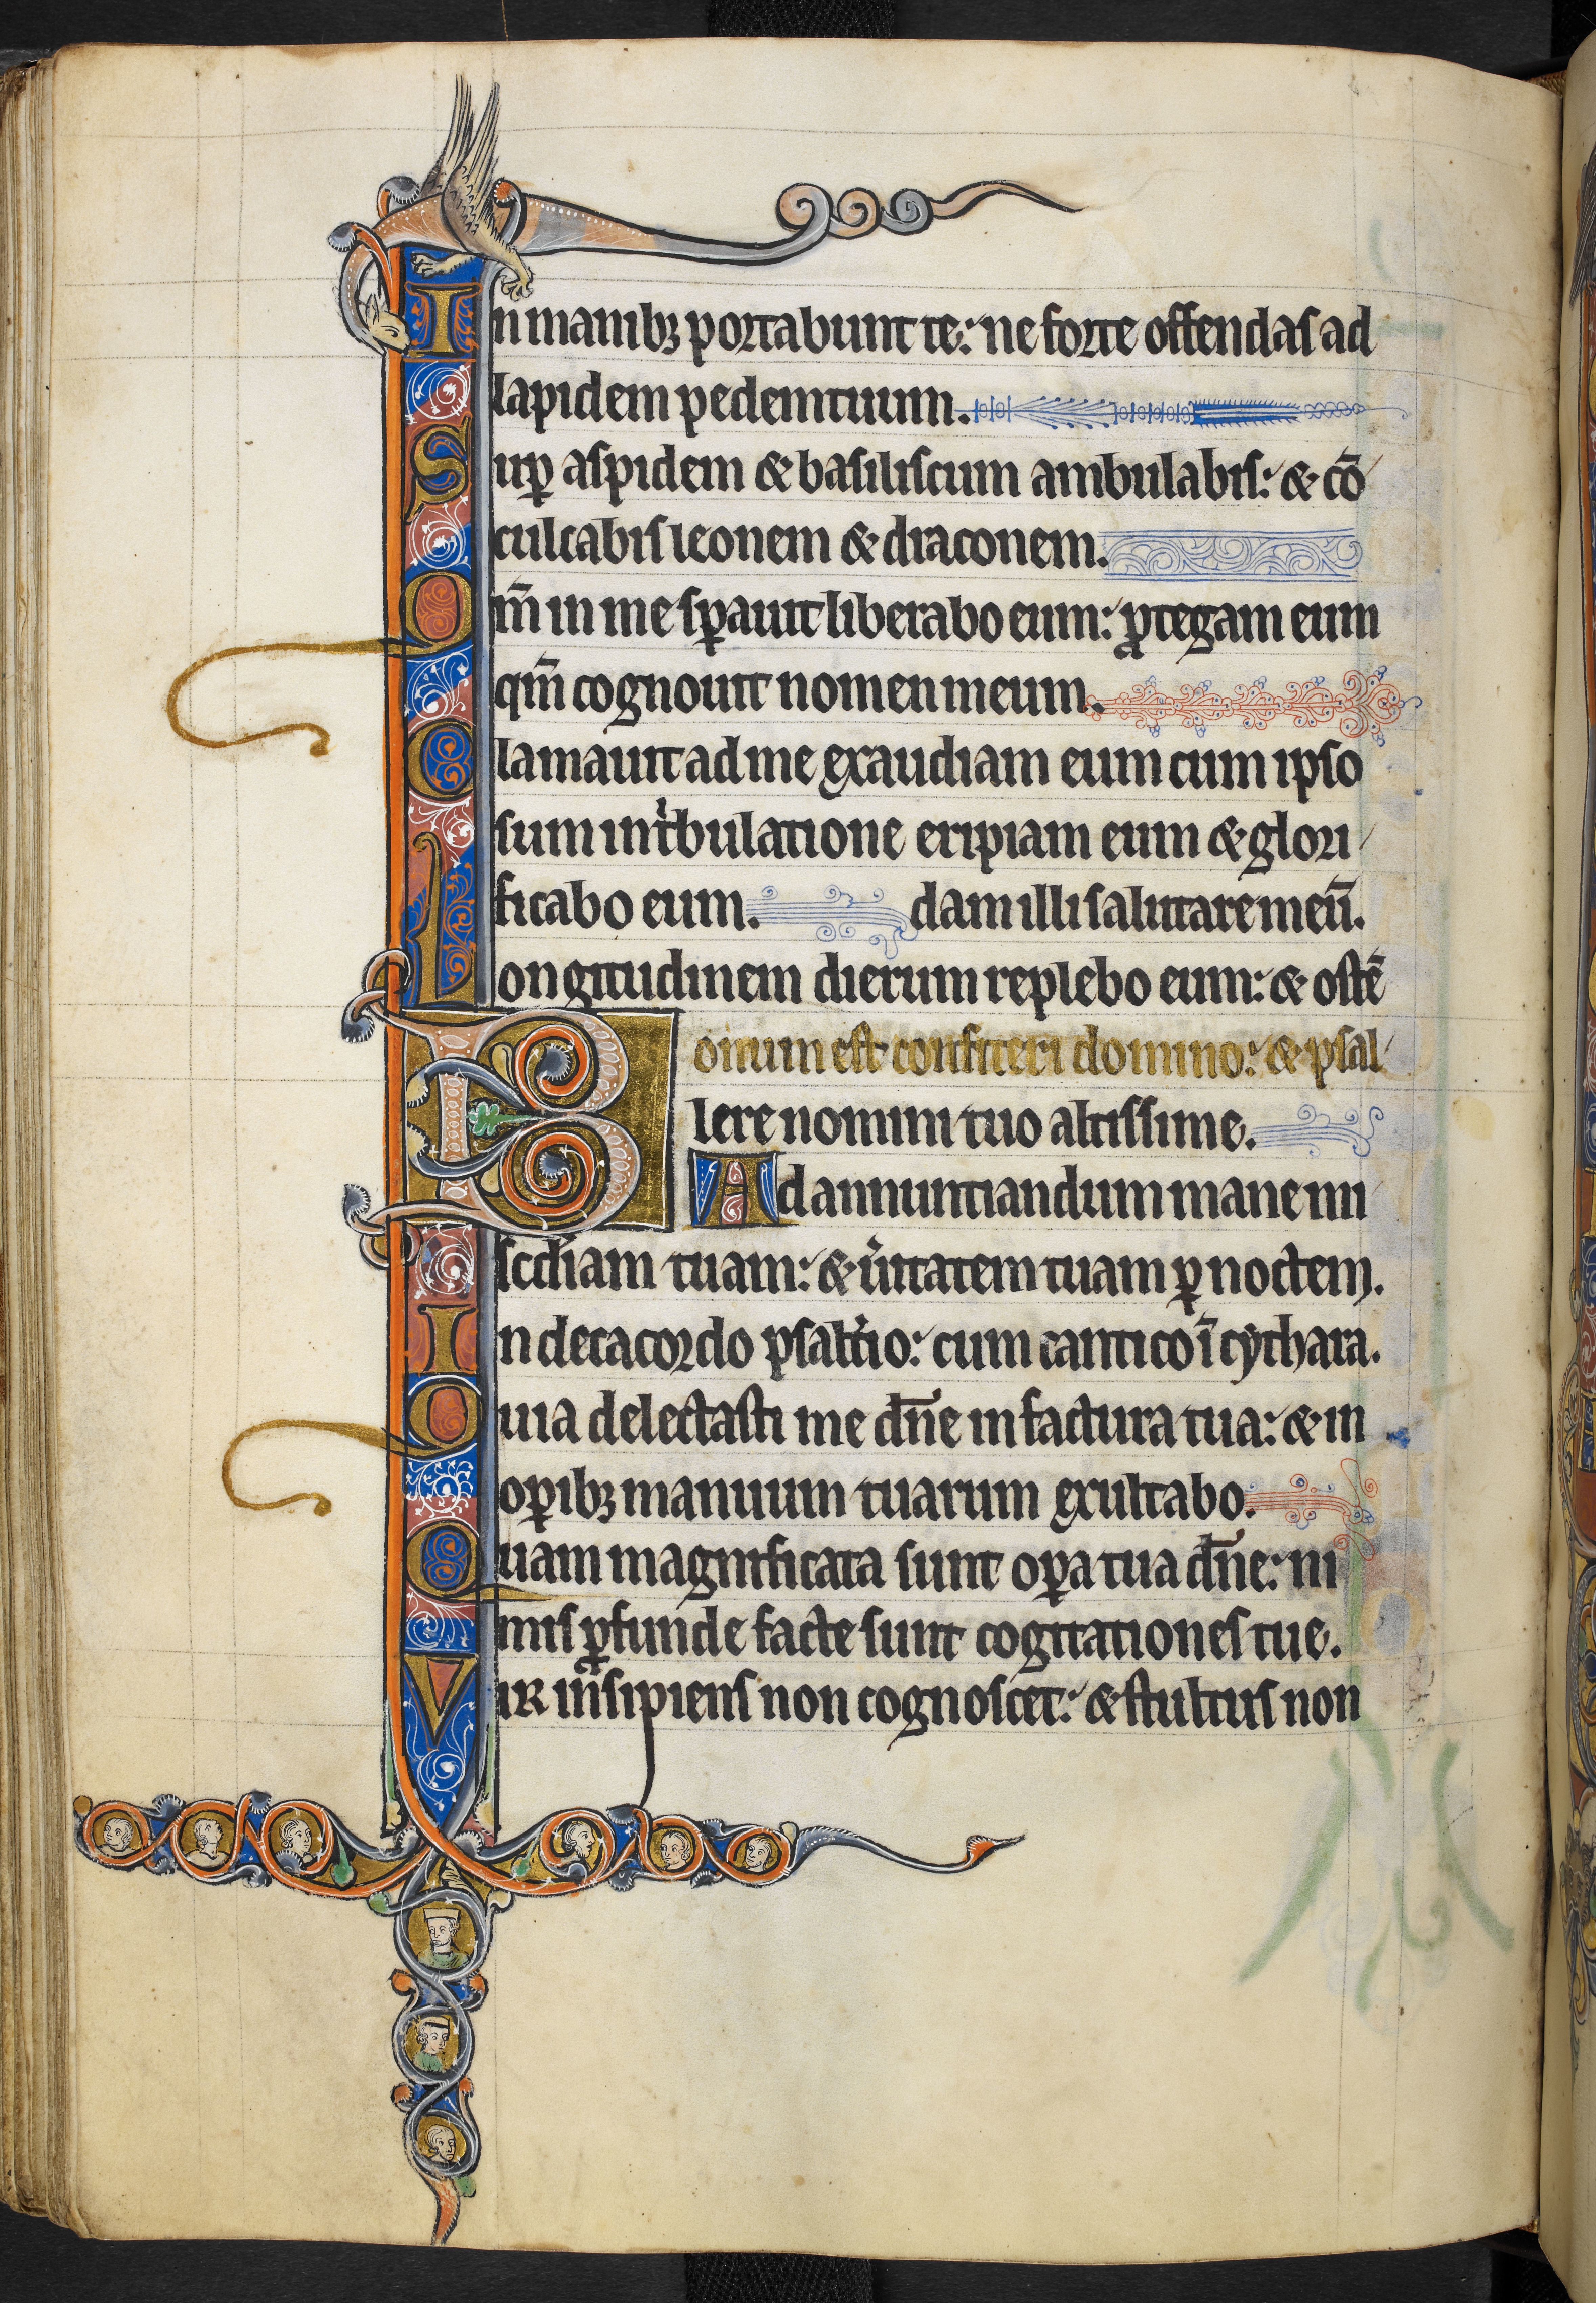 In manibꝫ portabunt te: ne forte offendas ad
lapidem pedem tuum.
Sup̱ aspidem & basiliscum ambulabis: & cō
culcabis leonem & draconem.
Qm̄ in me sꝑauit liberabo eum: ꝓtegam eum
qm̄ cognouit nomen meum.
Clamauit ad me exaudiam eum cum ipso
sum in tͥbulatione eripiam eum & glori
ficabo eum. dam illi salutare meū.
Longitudinem dierum replebo eum: & ostē
Bonum est confiteri domino: & psal
lere nomini tuo altissime.
Ad annuntiandum mane mi
scd̓iam tuam: & u̓itatem tuam ꝑ noctem.
In decacordo psalt̓io: cum cantico ī cythara.
Quia delectasti me dn̄e in factura tua: & in
oꝑibꝫ manuum tuarum exultabo.
Quam magnificata sunt oꝑa tua dn̄e: ni
mis ꝓfunde facte sunt cogitationes tue.
Vir insipiens non cognoscet: & stultus non